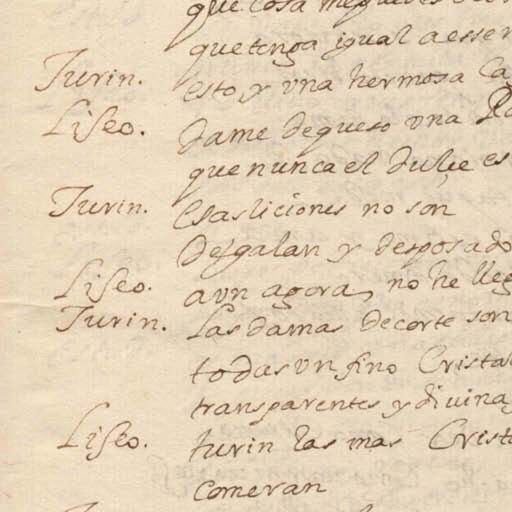 que cosa
que tenga igual a esser
Turin. esto y vna hermosa Ca
Liseo. dame de queso vna Ra
que nunca el dulçe es
Turin. Esas liciones no son
de galan y desposado
Liseo. aun agora, no he lleg
Turin. Las damas de corte son
todas vn fino Cristal
transparentes y divinas
Liseo. turin las mas Crista
comeran